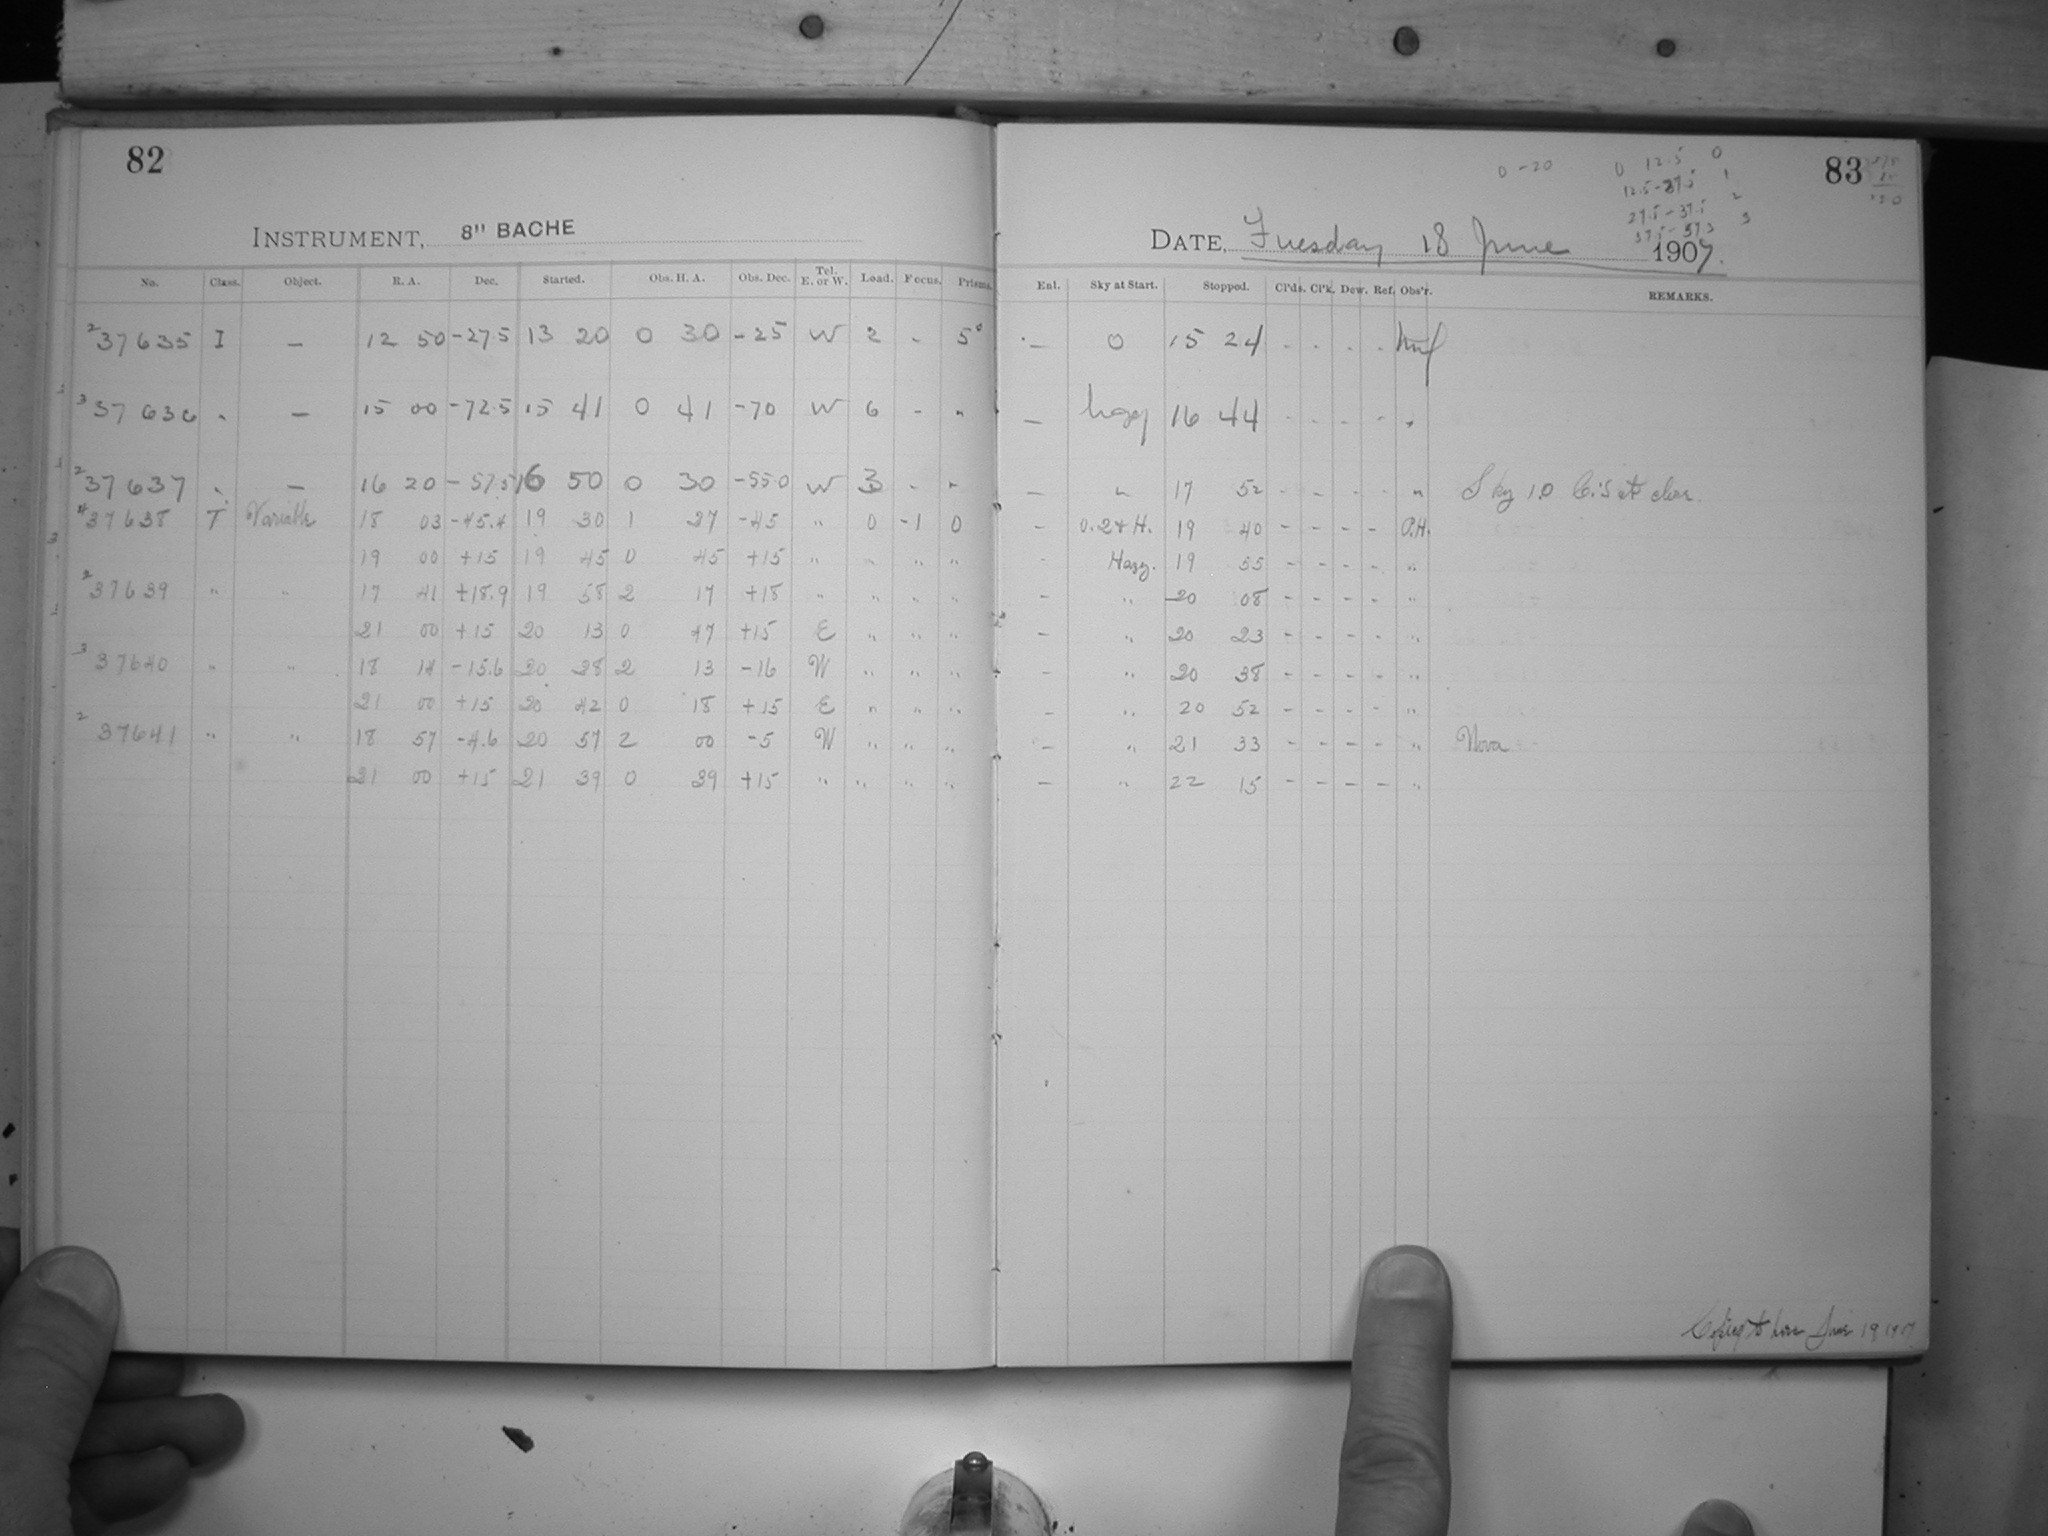 82
INSTRUMENT, 8" BACHE
No. Class. Object. R. A. Dec. Started. Obs. H. A. Obs. Dec. Tel. E. or W. Load. Focus. Prisms.
2 37635 I — 12 50 -27.5 13 20 0 30 -25 W 2 - 5°
3 37636 " — 15 00 -72.5 15 41 0 41 -70 W 6 - "
2 37637 " — 16 20 -57.5 16 50 0 30 -55.0 W 3 - "
4 37638 T Variable 18 03 -45.4 19 30 1 27 -45 " 0 -1 0
19 00 +15 19 45 0 45 +15 " " " "
2 37639 " " 17 41 +18.9 19 58 2 17 +18 " " " "
21 00 +15 20 13 0 47 +15 E " " "
3 37640 " " 18 14 -15.6 20 28 2 13 -16 W " " "
21 00 +15 20 42 0 18 +15 E " " "
2 37641 " " 18 57 -4.6 20 57 2 00 -5 W " " "
21 00 +15 21 39 0 39 +15 " " " "
83
0 -20
0 12.5 0
12.5-27.5 1
27.5-37.5 2
37.5- 3
DATE, Tuesday 18 June 1907.
Enl. Sky at Start. Stopped. Cl'ds. Cl'k. Dew. Ref. Obs'r. REMARKS.
— 0 15 24 - - - -
— hazy 16 44 - - - - "
— " 17 52 - - - - " Sky 10
— 0.2+H. 19 40 - - - - O.H.
- Hazy. 19 55 - - - - "
— " 20 08 - - - - "
— " 20 23 - - - - "
— " 20 38 - - - - "
— " 20 52 - - - - "
— " 21 33 - - - - " Nova
— " 22 15 - - - - "
Copied to here June 19 1907